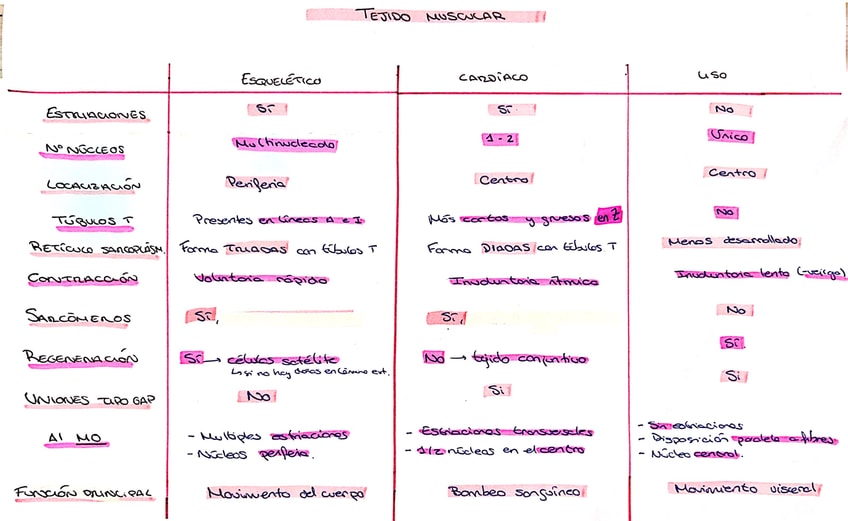 TEJIDO MUSCULAR
ESQUELÉTICO CARDÍACO LISO
ESTRIACIONES Sí Sí No
Nº NÚCLEOS Multinucleado 1-2 Único
LOCALIZACIÓN Periferia Centro Centro
TÚBULOS T Presentes en líneas A e I Más cortos y gruesos en Z No
RETÍCULO SARCOPLÁSM. Forma TRIADAS con túbulos T Forma DIADAS con túbulos T Menos desarrollado
CONTRACCIÓN Voluntaria rápida Involuntaria rítmica Involuntaria lenta (-energ)
SARCÓMEROS Sí, Sí, No
REGENERACIÓN Sí → células satélite No → tejido conjuntivo Sí
↳ si no hay daños en lámina ext.
UNIONES TIPO GAP No Sí Sí
Al MO - Multiples estriaciones - Estriaciones transversales - Sin estriaciones
- Núcleos periferia. - 1/2 núcleos en el centro - Disposición paralela a fibras
- Núcleo central.
FUNCIÓN PRINCIPAL Movimiento del cuerpo Bombeo sanguíneo Movimiento visceral